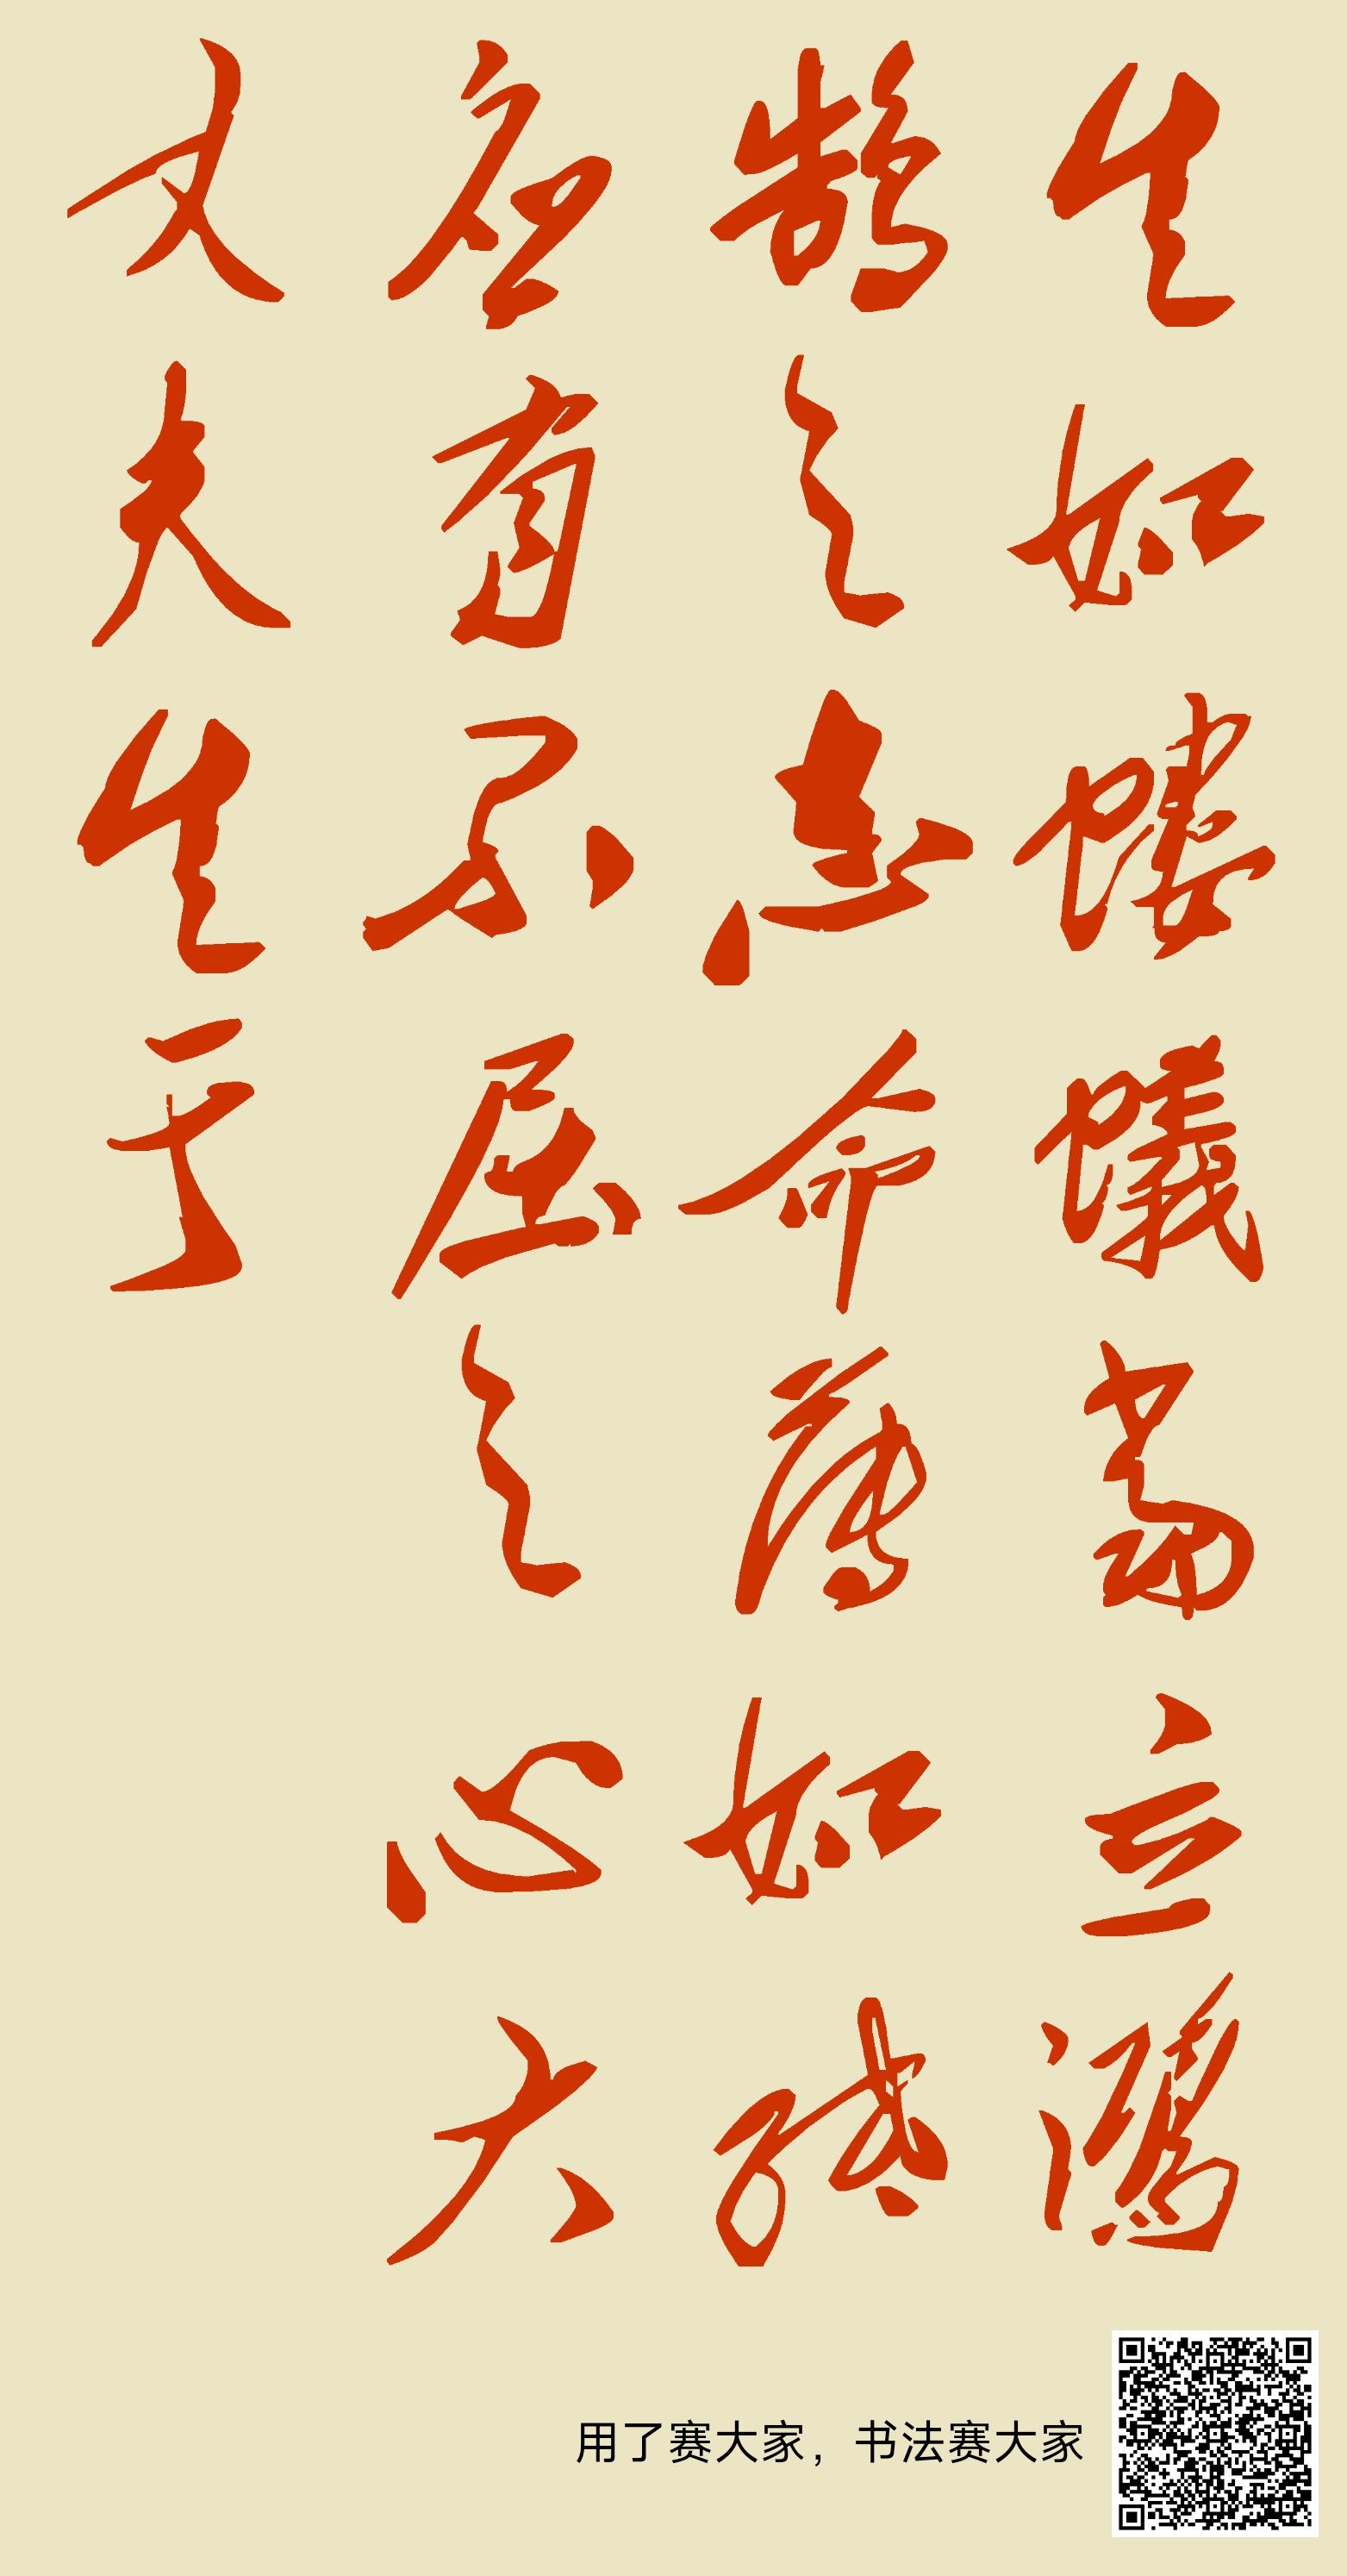 生如螻蟻當立鴻
鵠之志命薄如紙
应有不屈之心大
丈夫生于
用了赛大家，书法赛大家